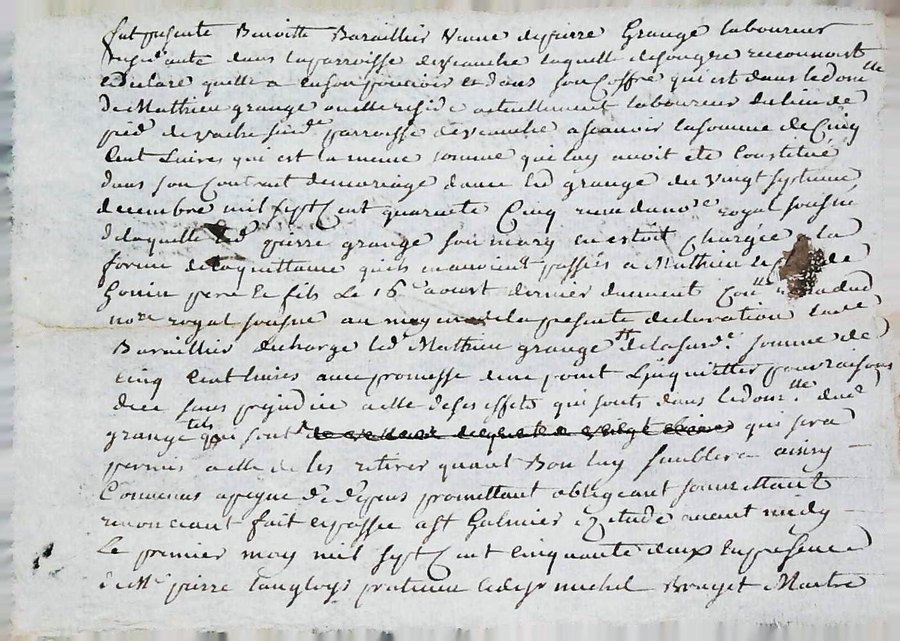 fut presente Benoitte Baraillier veuve de pierre Grange laboureur
dans la parroisse de veauche laquelle de son gre reconnoit
et declare quelle a en son pouvoir et dans son coffre qui est dans le dom.lle
de Mathieu grange ou elle reside actuellement laboureur du lieu de
pied de vache susd.e parroisse de veauche a scavoir la somme de Cinq
Cent Livres qui est la meme somme qui luy avoit ete Constituée
dans son Contract de mariage avec led grange du vingt septieme
decembre mil sept Cent quarente Cinq no.re royal soussigné
de laquelle led pierre grange son mary en estoit Chargée a la
forme de la quittance quils en avoient passés a Mathieu de
Gonin pere et fils Le 16.e aoust dernier duement Con.llé
no.re royal sousné au moyen de la presente declaration lad.e
Baraillier decharge led. Mathieu grange de la susd.e somme de
Cinq Cent livres avec promesse de ne point L'inquietter pour raisons
dicelle sans prejudice a elle de ses effets qui sont dans le dom.lle dud
grange tels que sont qui sera
permis a elle de les retirer quant Bon luy semblera ainsy
Convenus a peyne de depens promettant obligeant soumettant
renoncant fait et passé a St Galmier etude avant midy
Le premier may mil sept Cent cinquante deux En presence
de M.e pierre Langloys praticien et de sr michel Bouget Maitre